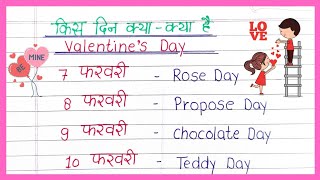 किस दिन क्या-क्या है
Valentine's Day
BE MINE
LOVE
7 फरवरी - Rose Day
8 फरवरी - Propose Day
9 फरवरी - Chocolate Day
10 फरवरी - Teddy Day